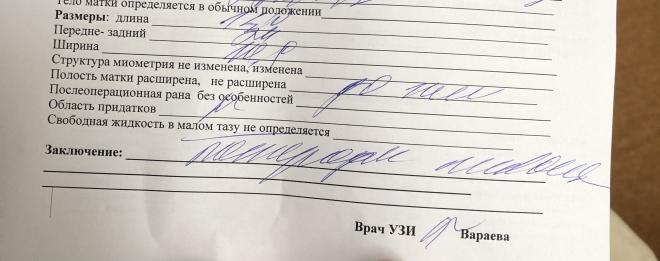 Тело матки определяется в обычном положении
Размеры: длина
Передне- задний
Ширина
Структура миометрия не изменена, изменена
Полость матки расширена, не расширена до мм
Послеоперационная рана без особенностей
Область придатков
Свободная жидкость в малом тазу не определяется
Заключение:
Врач УЗИ Вараева